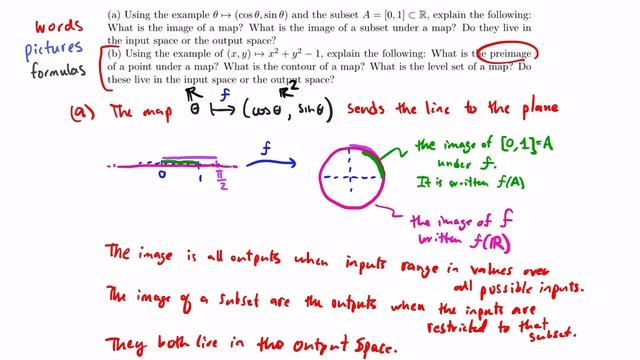 (a) Using the example θ ↦ (cos θ, sin θ) and the subset A = [0, 1] ⊂ ℝ, explain the following:
What is the image of a map? What is the image of a subset under a map? Do they live in
the input space or the output space?
(b) Using the example of (x, y) ↦ x² + y² − 1, explain the following: What is the preimage
of a point under a map? What is the contour of a map? What is the level set of a map? Do
these live in the input space or the output space?
words
pictures
formulas
ℝ f ℝ²
(a) The map θ ↦ (cosθ, sinθ) sends the line to the plane
f
0 1 π/2
the image of [0,1]=A
under f.
It is written f(A)
the image of f
written f(ℝ)
The image is all outputs when inputs range in values over
all possible inputs.
The image of a subset are the outputs when the inputs are
restricted to that
subset.
They both live in the output space.